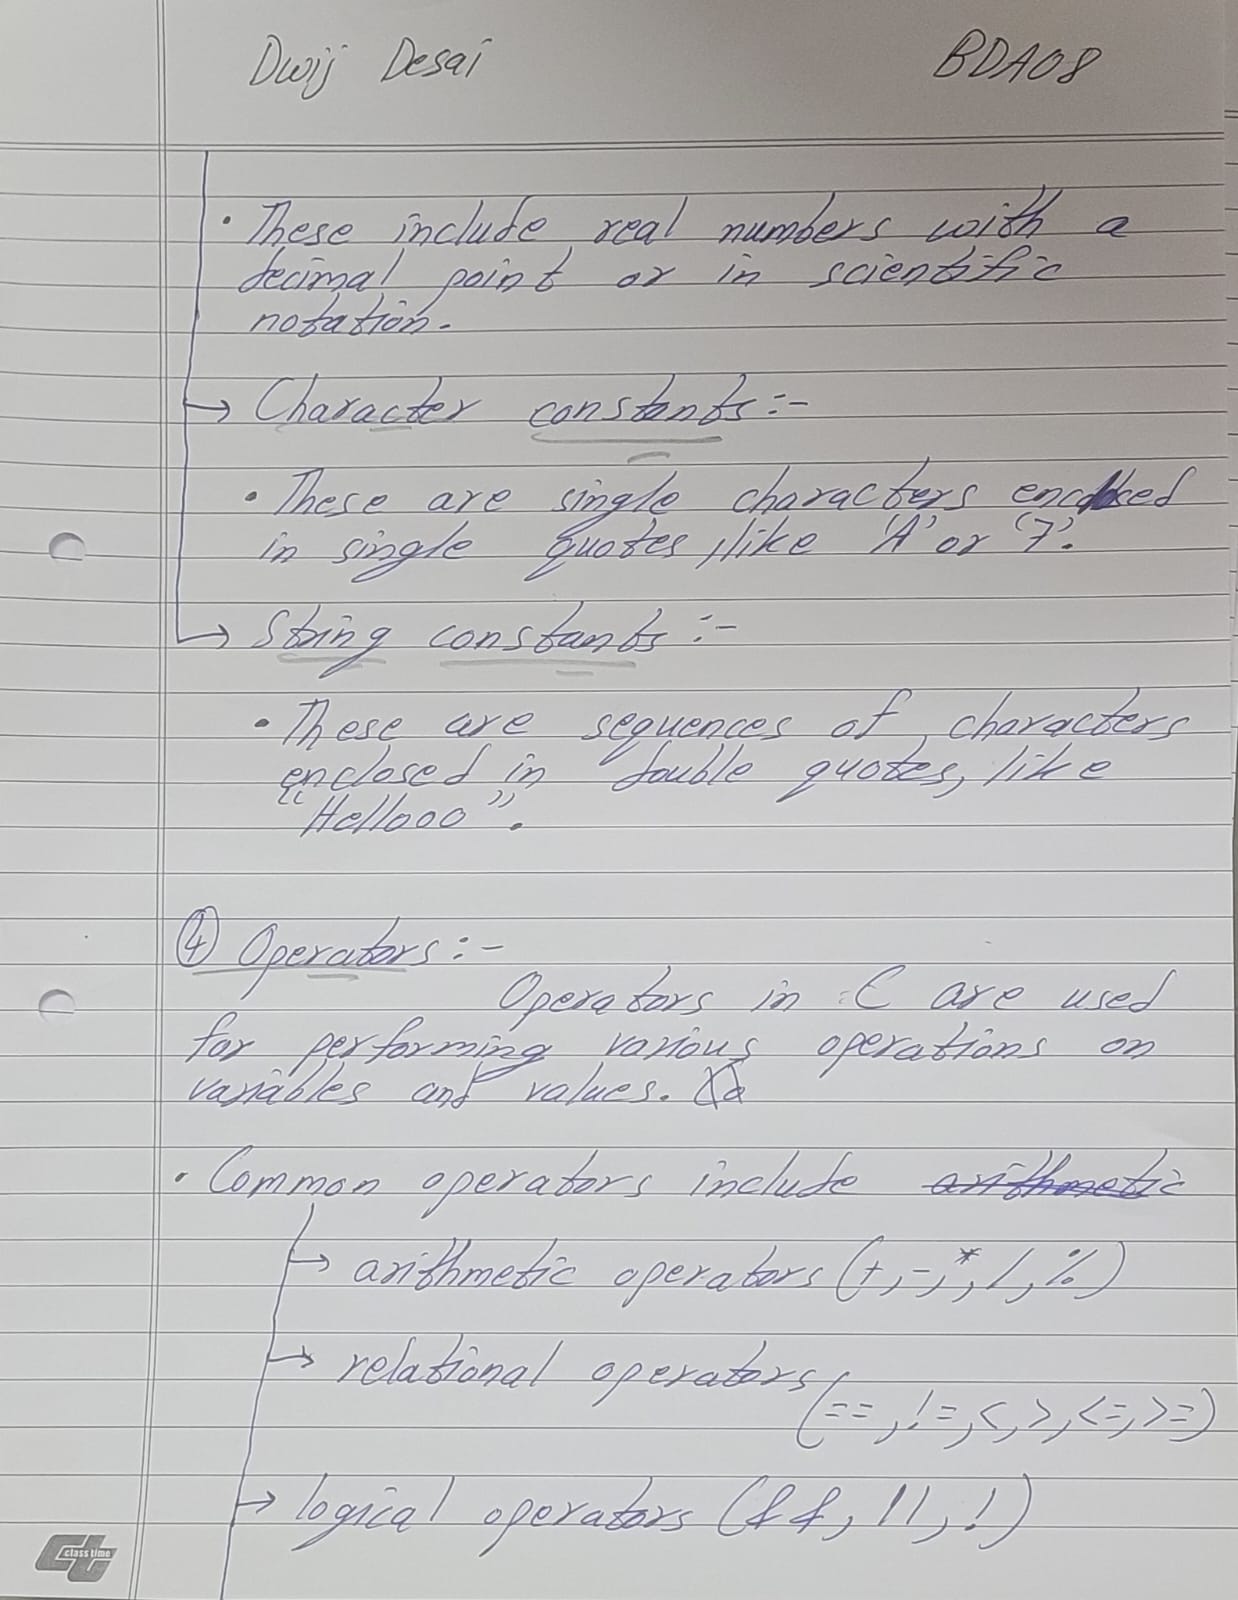 Dwij Desai BDA08
• These include real numbers with a
decimal point or in scientific
notation.
→ Character constants:-
• These are single characters enclosed
in single quotes, like 'A' or '7'.
→ String constants :-
• These are sequences of characters
enclosed in double quotes, like
"Hellooo".
④ Operators:-
Operators in C are used
for performing various operations on
variables and values.
• Common operators include arithmetic
→ arithmetic operators (+, -, *, /, %)
→ relational operators
(==, !=, <, >, <=, >=)
→ logical operators (&&, ||, !)
class time